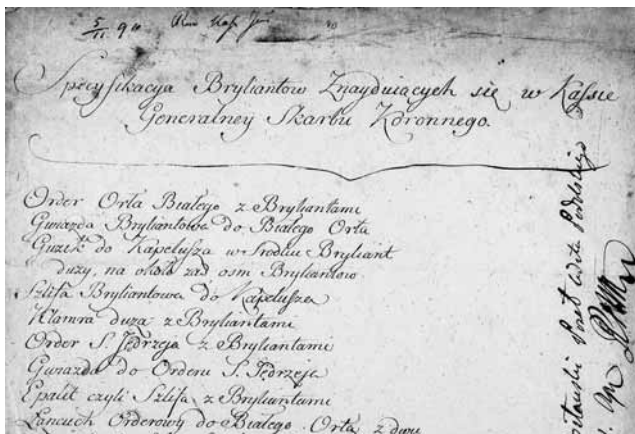 5/11 90
Specyfikacya Bryliantow Znayduiących się w Kassie
Generalney Skarbu Koronnego.
Order Orła Białego z Bryliantami
Gwiazda Bryliantowa do Białego Orła
Guzik do Kapelusza w srodku Bryliant
duży, na okoła zaś osm Bryliantow.
Szlifa Bryliantowa do Kapelusza
Klamra duża z Bryliantami
Order S. Jędrzeja z Bryliantami
Gwiazda do Orderu S. Jędrzeja
Epolit czyli Szlifa z Bryliantami
Łancuch Orderowy do Białego Orła z dwu